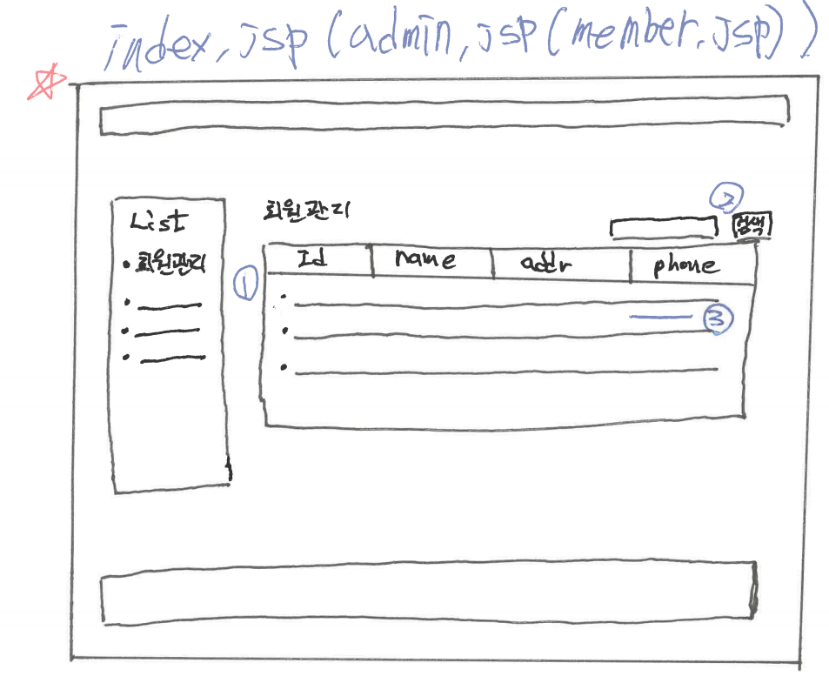 index.jsp (admin.jsp (member.jsp))
List
• 회원관리
회원관리
②
검색
①
Id name addr phone
③